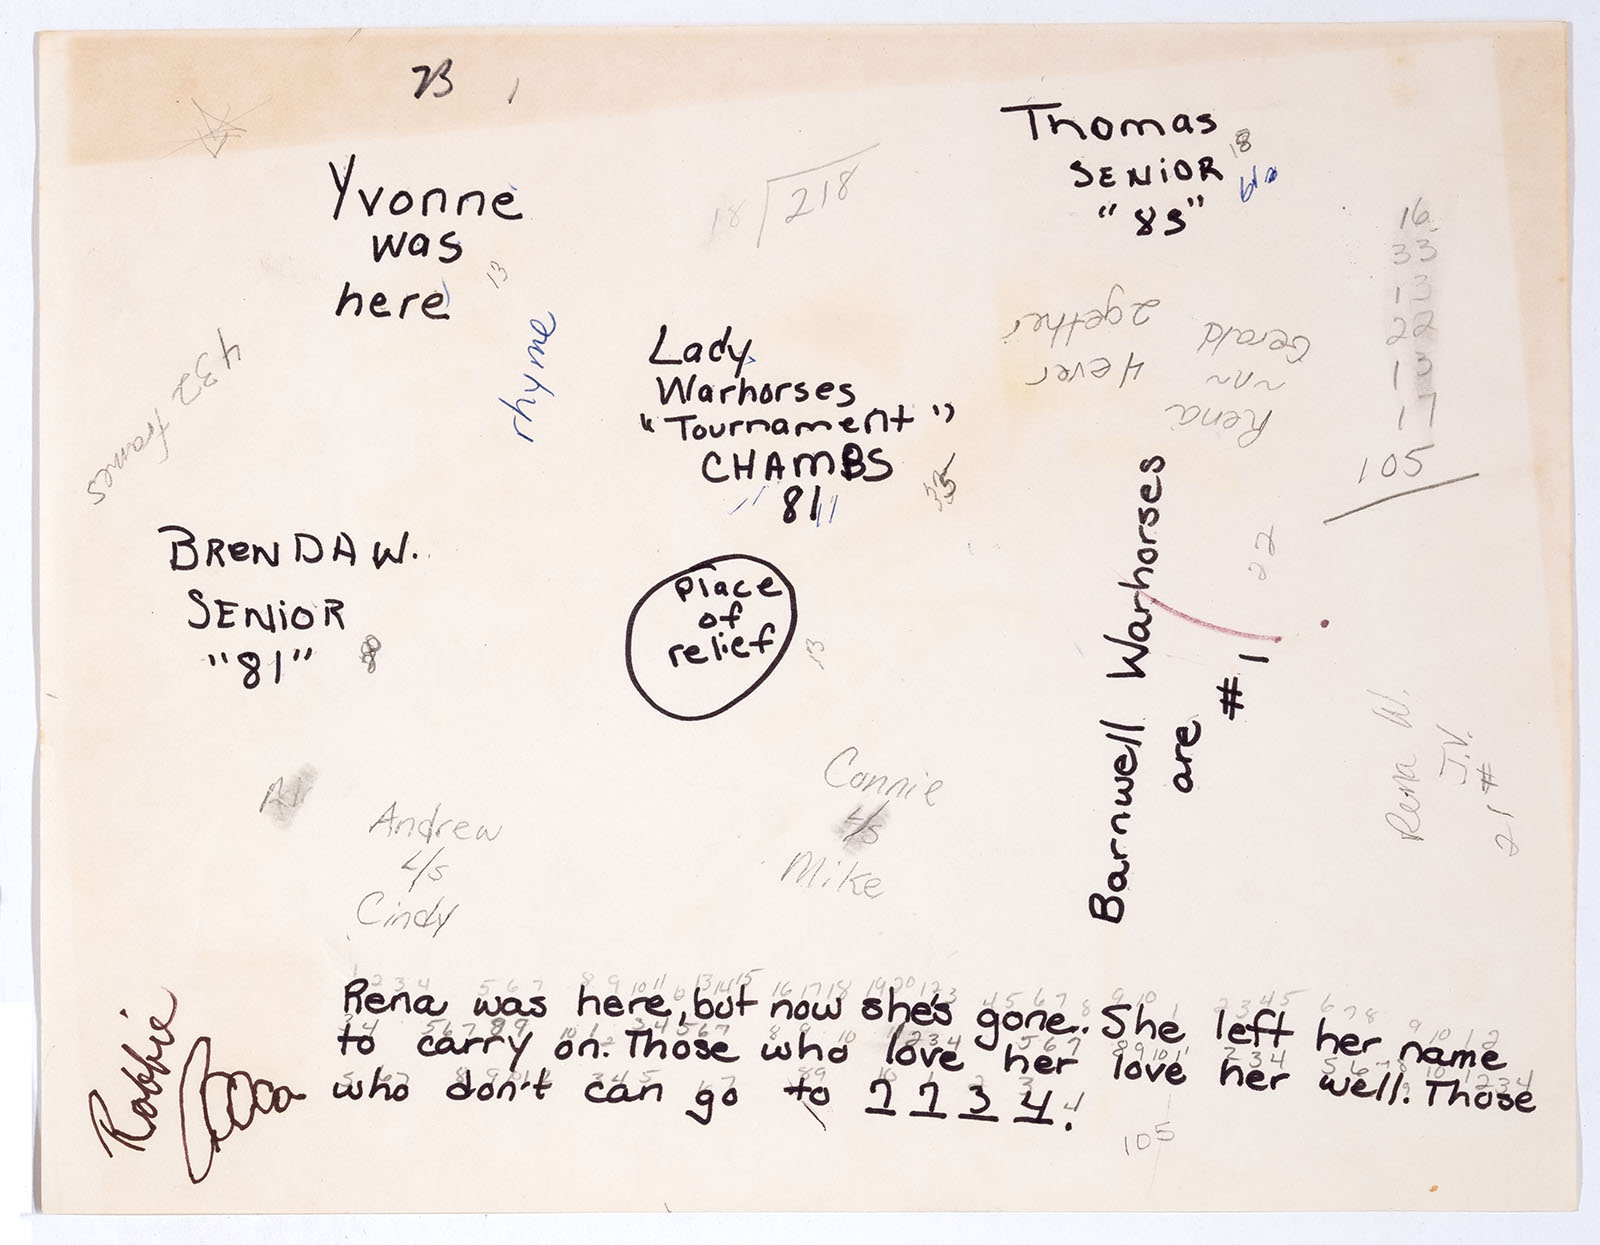 73
Yvonne
was
here
13
18 218
Thomas
SENIOR
"83"
18
16
33
13
22
13
11
105
432 frames
rhyme
Lady
Warhorses
"Tournament"
CHAMBS
81
33
Rena
Gerald
4ever
2gether
BRENDA W.
SENIOR
"81"
Place
of
relief
13
Barnwell Warhorses
are
#1
22
Rena W.
J.V.
21 #
Andrew
4/s
Cindy
Connie
4/s
Mike
Robbie
Rena was here, but now she's gone. She left her name
to carry on. Those who love her love her well. Those
who don't can go to 1 2 3 4.
105